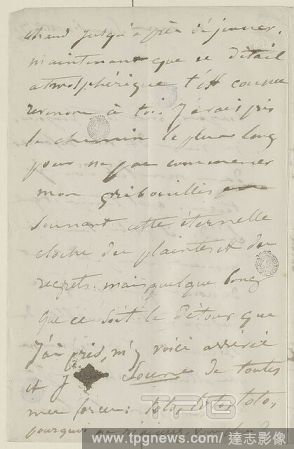 chaud jusqu'après déjeuner.
maintenant que ce détail
atmosphérique t'est connu
revenons à toi. J'avais pris
le chemin le plus long
pour ne pas commencer
mon gribouillis en
sonnant cette éternelle
cloche des plaintes et des
regrets mais quelque long
que ce soit le détour que
j'ai pris, m'y voici arrivée
et je sonne de toutes
mes forces: toto, toto, toto,
pourquoi
TPG
www.tpgnews.com / 達志影像